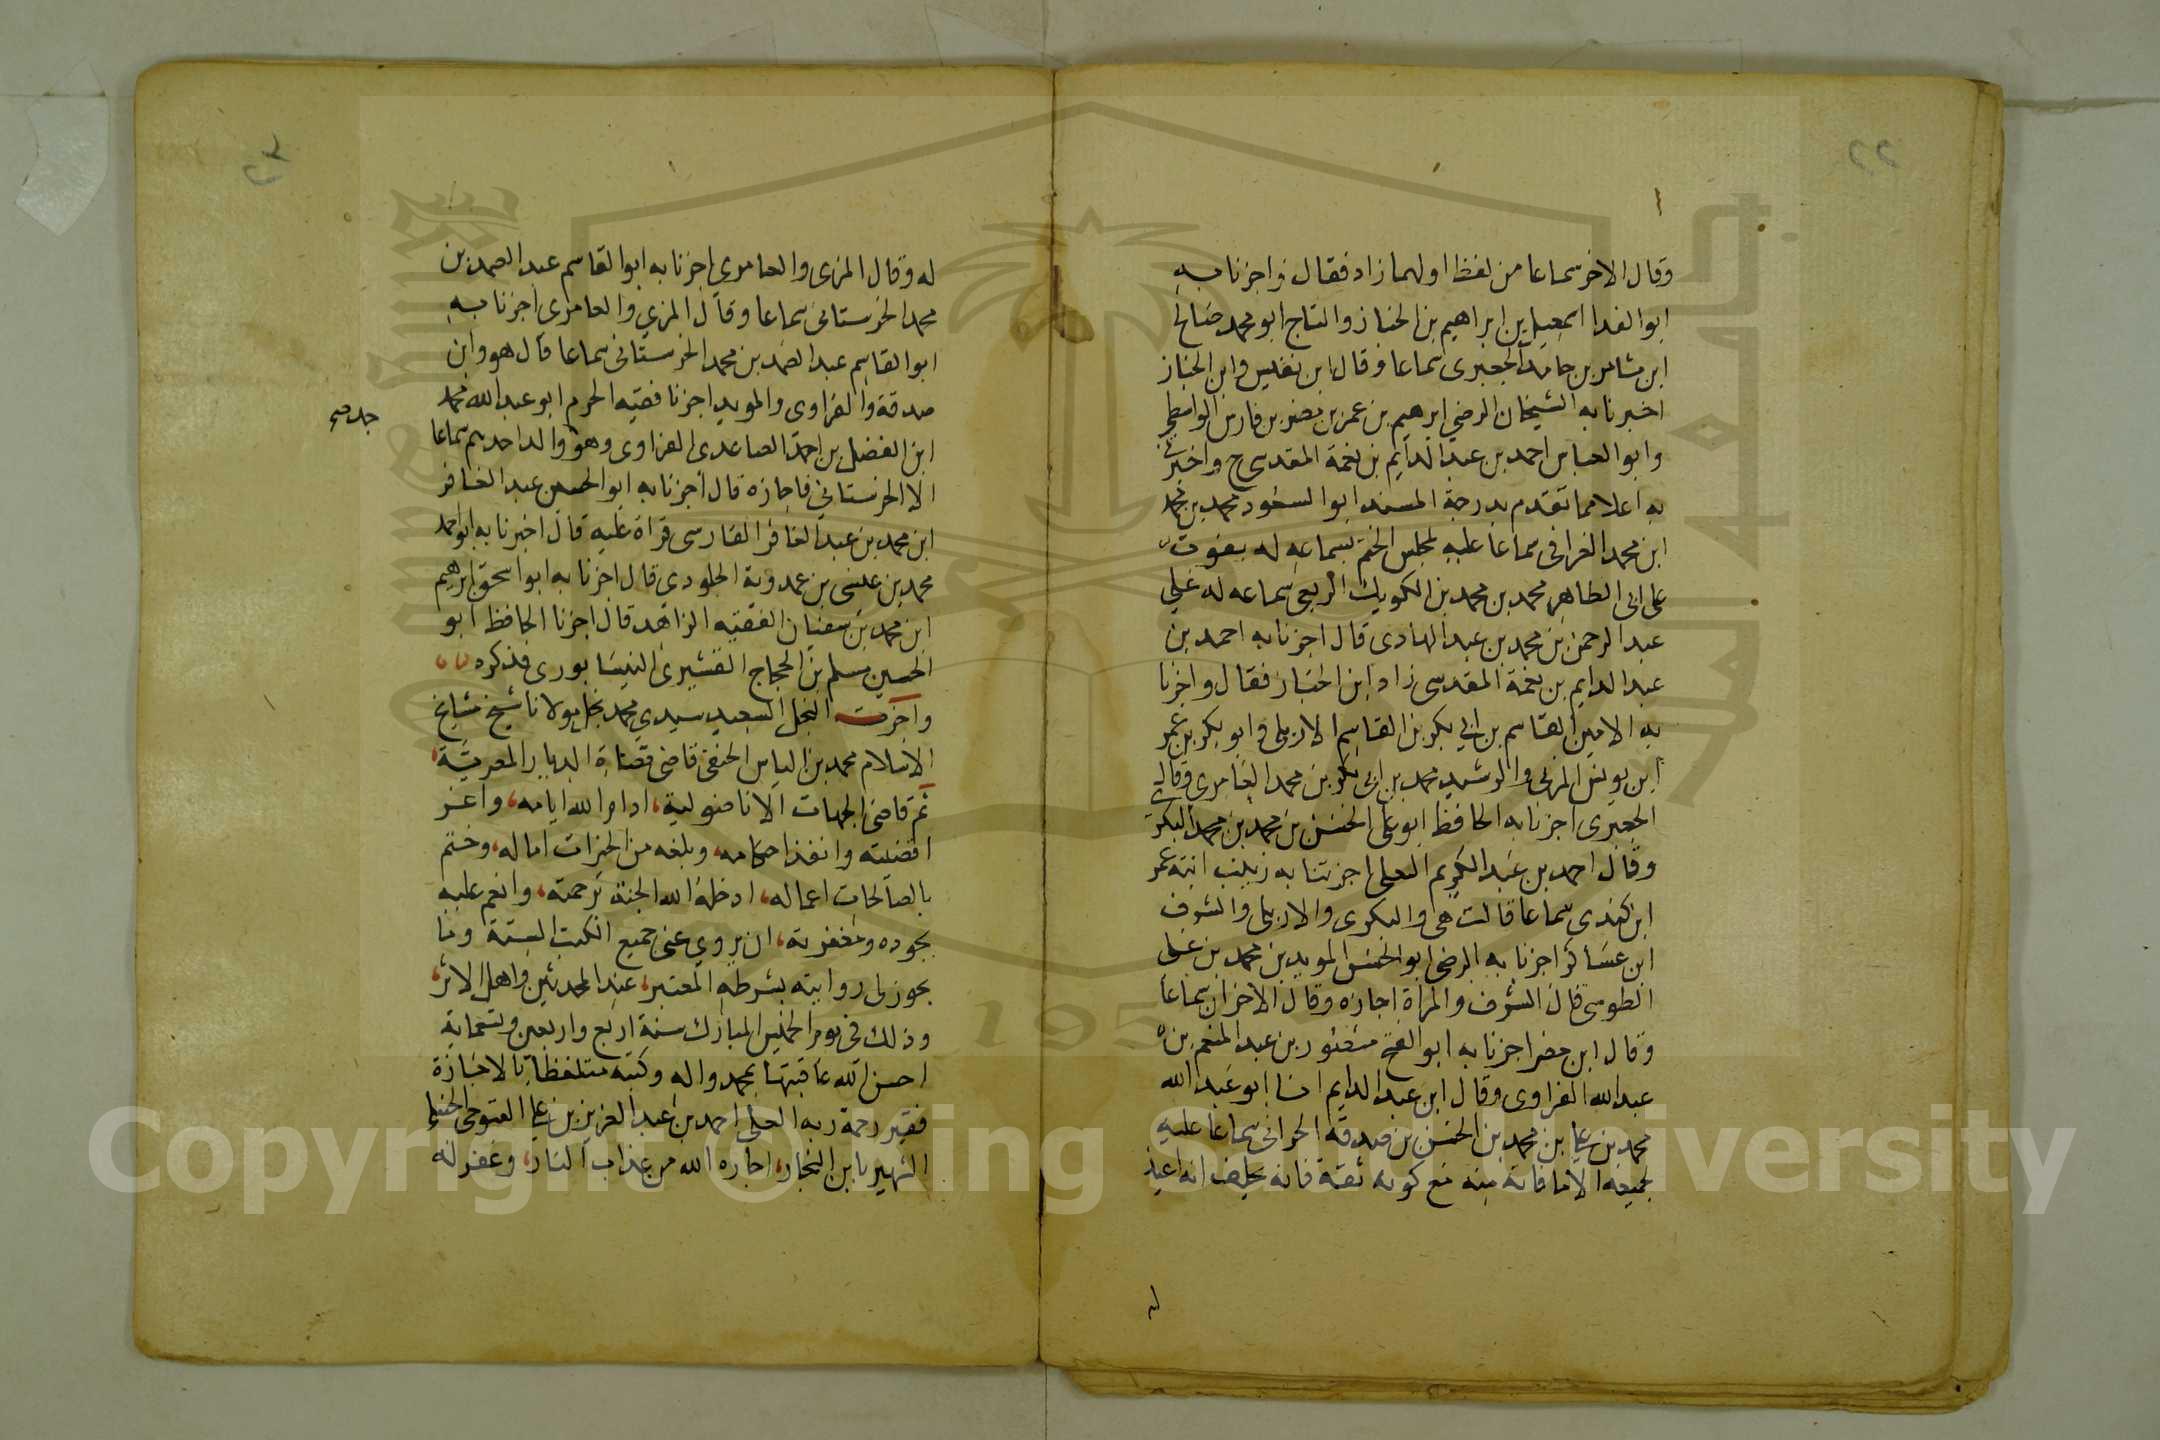 ٢٢
وقال الاخر سماعا من لفظ اولهما زاد فقال واخبرنا به
ابو الفدا اسمعيل بن ابراهيم بن الخباز والتاج ابو محمد صالح
ابن ثامر بن حامد الجعبرى سماعا وقال ابن نفيس وابن الخباز
اخبرنا به الشيخان الرضي ابرهيم بن عمر بن مضر بن فارس الواسطي
وابو العباس احمد بن عبد الدايم بن نعمة المقدسي ح واخبرني
به اعلا مما تقدم بدرجة المسند ابو السعود محمد بن محمد
ابن محمد الغراقى سماعا عليه لمجلس الختم بسماعه له بفوت
على ابى الطاهر محمد بن محمد بن الكويك الربعى بسماعه له على
عبد الرحمن بن محمد بن عبد الهادى قال اخبرنا به احمد بن
عبد الدايم بن نعمة المقدسى زاد ابن الخباز فقال واخبرنا
به الامين القاسم بن ابي بكر بن القاسم الاربلى وابو بكر بن عمر
ابن يونس المزى والرشيد محمد بن ابى بكر بن محمد العامرى وقال
الجعبرى اخبرنا به الحافظ ابو على الحسن بن محمد بن محمد البكرى
وقال احمد بن عبد الكريم البعلى اخبرتنا به زينب ابنة عمر
ابن كندى سماعا قالت هى والبكرى والاربلى والشرف
ابن عساكر اخبرنا به الرضى ابو الحسن المويد بن محمد بن على
الطوسى قال الشرف والمراة اجازة وقال الاخران سماعا
وقال ابن مضر اخبرنا به ابو الفتح منصور بن عبد المنعم بن
عبد الله الفراوى وقال ابن عبد الدايم انا ابو عبد الله
محمد بن علي بن محمد بن الحسن بن صدقة الحرانى سماعا عليه
لجميعه الا ما فاته منه مع كونه ثقة فانه يحلف انه اعيد
له
٢٣
له وقال المزى والعامرى اخبرنا به ابو القاسم عبد الصمد بن
محمد الحرستانى سماعا وقال المزي والعامرى اخبرنا به
ابو القاسم عبد الصمد بن محمد الحرستانى سماعا قال هو وابن
صدقة والفراوى والمويد اخبرنا فقيه الحرم ابو عبد الله محمد
ابن الفضل بن احمد الصاعدى الفراوى وهو والد احدهم سماعا
جد صح
الا الحرستاني فاجازة قال اخبرنا به ابو الحسين عبد الغافر
ابن محمد بن عبد الغافر الفارسى قراة عليه قال اخبرنا به ابو احمد
محمد بن عيسى بن عمدوية الجلودى قال اخبرنا به ابو اسحق ابراهيم
ابن محمد بن سفيان الفقيه الزاهد قال اخبرنا الحافظ ابو
الحسين مسلم بن الحجاج القشيرى النيسابورى فذكره
واجزت النجل السعيد سيدي محمد نجل مولانا شيخ مشايخ
الاسلام محمد بن الياس الحنفى قاضى قضاة الديار المصرية
ثم قاضى الجهات الاناضولية، ادام الله ايامه، واعز
اقضيته وانفذ احكامه، وبلغه من الخيرات اماله، وختم
بالصالحات اعماله، ادخله الله الجنة برحمته، وانعم عليه
بجوده ومغفرته، ان يروي عنى جميع الكتب الستة وما
يجوز لى روايته بشرطه المعتبر، عند المحدثين واهل الاثر،
وذلك فى يوم الخميس المبارك سنة اربع واربعين وتسماية
احسن الله عاقبتها بمحمد واله وكتبه متلفظا بالاجازة
فقير رحمة ربه العلى احمد بن عبد العزيز بن علي الفتوحى الحنبلي
الشهير بابن النجار، اجاره الله من عذاب النار، وغفر له
Copyright © King Saud University